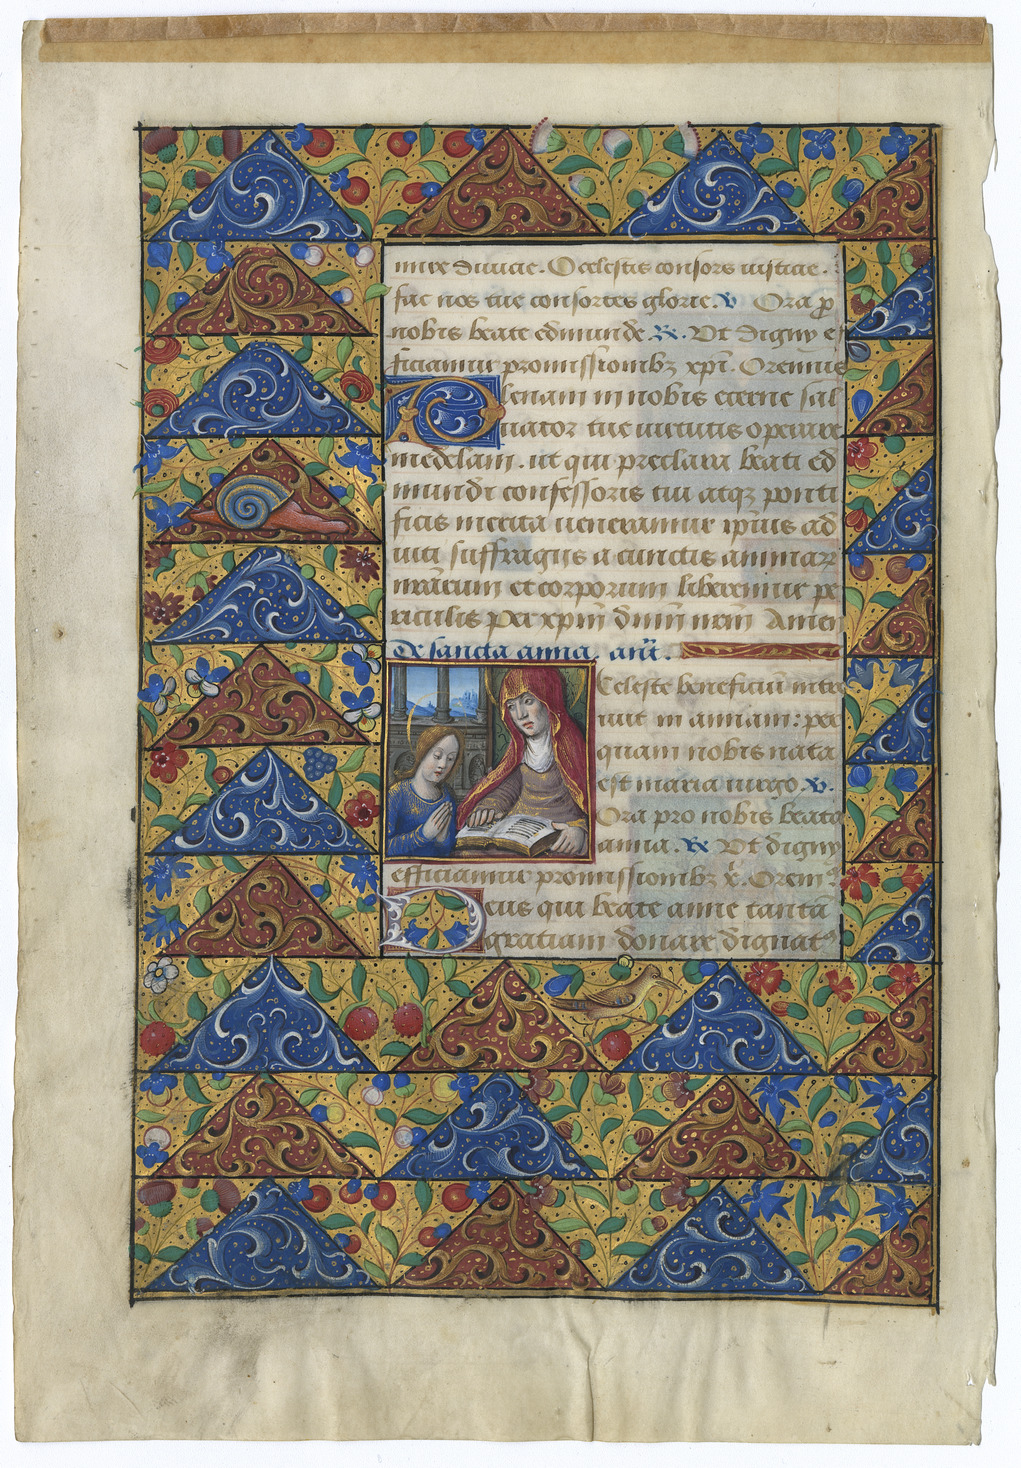 diuicie. O celestis consors
fac nos tue consortes glorie. v Ora p
nobis beate edmunde R. Vt digny e
fficiamur promissionibz xpi. Oremus
Plenam in nobis eterne sal
uator tue uirtutis operare
medelam. ut qui preclara beati ed
mundi confessoris tui atqz ponti
ficis merita ueneramur ipius ad
iuti suffragijs a cunctis animarum
nrarum et corporum liberemur pe
riculis per xpm dnm nrm Amen
De sancta anna. ant.
Celeste beneficiu intro
iuit in annam: per
quam nobis nata
est maria uirgo. v.
Ora pro nobis beata
anna. R Vt digny
efficiamur promissionibz x. Orem
Deus qui beate anne tanta
gratiam donare dignat